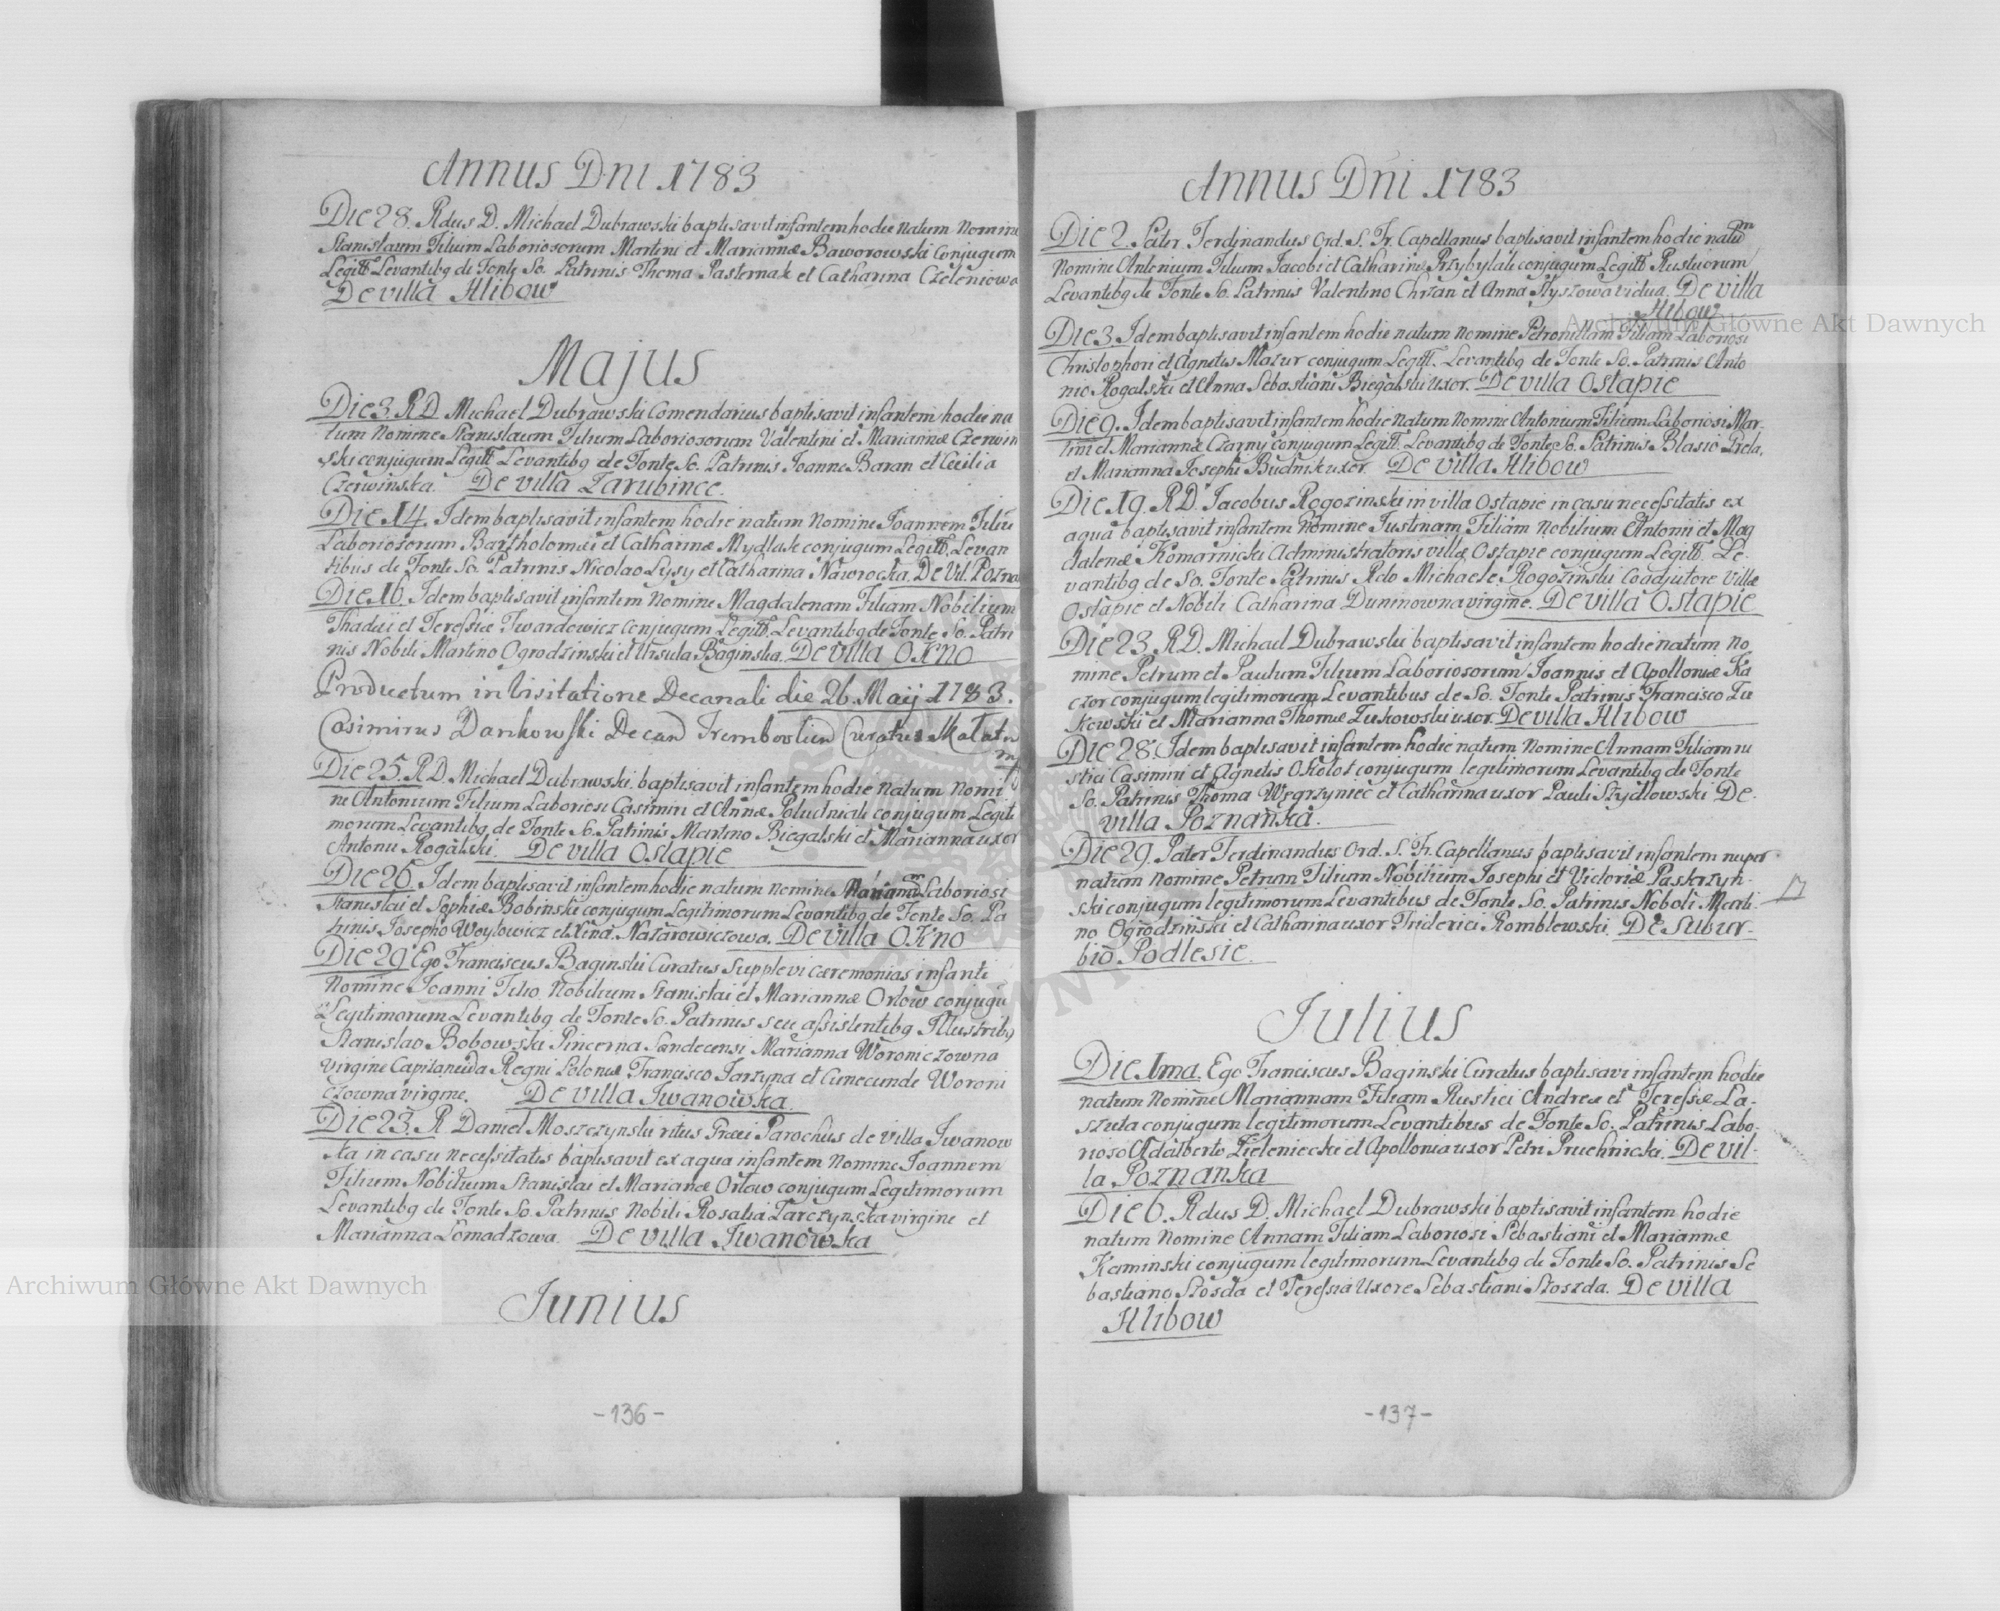 Annus Dni 1783
Die 28. Rdus D. Michael Dubrawski baptisavit infantem hodie natum Nomine
Stanislaum Filium Laboriosorum Martini et Mariannæ Baworowski Conjugum
Legitt Levantibq de Fonte So. Patrinis Thoma Pasternak et Catharina Czeleniowa
De villa Hlibow
Majus
Die 3. R D. Michael Dubrawski Comendarius baptisavit infantem hodie na
tum Nomine Stanislaum Filium Laboriosorum Valentini et Mariannæ Czerwin
ski conjugum Legitt Levantibq de Fonte So. Patrinis Joanne Baran et Cecilia
Czerwinska. De villa Zarubince.
Die 14. Idem baptisavit infantem hodie natum Nomine Joannem Filiū
Laboriosorum Bartholomæi et Catharinæ Mydlak conjugum Legitt. Levan
tibus de Fonte So. Patrinis Nicolao Lysy et Catharina Nawrocka. De Vil. Pozna
Die 16. Idem baptisavit infantem Nomine Magdalenam Filiam Nobilium
Thadæi et Teressiæ Twardowicz Conjugum Legitt. Levantibq de Fonte So. Patri
nis Nobili Martino Ogrodzinski et Ursula Baginska. De villa OKno
Productum in Visitatione Decanali die 26. Maij 1783.
Casimirus Dankowski Decan Trembovlien Curatus
Die 25. R D. Michael Dubrawski baptisavit infantem hodie natum Nomi
ne Antonium Filium Laboriosi Casimiri et Annæ Poludniak conjugum Legiti
morum Levantibq de Fonte So. Patrinis Martino Biegalski et Marianna uxor
Antonii Rogalski. De villa Ostapie
Die 26. Idem baptisavit infantem hodie natum Nomine Mariannam Laboriosi
Stanislai et Sophiæ Bobinski conjugum Legitimorum Levantibq de Fonte So. Pa
trinis Josepho Woylowicz et Xina. Nazarowiczowa. De villa OKno
Die 29 Ego Franciscus Baginski Curatus Supplevi cæremonias infanti
Nomine Joanni Filio Nobilium Stanislai et Mariannæ Orlow conjugū
Legitimorum Levantibq de Fonte So. Patrinis seu assistentibq Illustribq
Stanislao Bobowski Pincerna Sandecensi Marianna Woroniczowna
virgine Capitaneida Regni Poloniæ Francisco Jarzyna et Cunecunde Woroni
czowna virgine. De villa Iwanowka
Die 23. R Daniel Moszczynski ritus Græci Parochus de villa Iwanow
ka in casu necessitatis baptisavit ex aqua infantem Nomine Joannem
Filium Nobilium Stanislai et Marianæ Orlow conjugum Legitimorum
Levantibq de Fonte So Patrinis Nobili Rosalia Tarczynska virgine et
Marianna Lomadzowa. De villa Iwanowka
Junius
-136-
Annus Dni 1783
Die 2. Pater Ferdinandus Ord. S. Fr. Capellanus baptisavit infantem hodie natum
Nomine Antonium Filium Jacobi et Catharinæ Przybylak conjugum Legitt Rusticorum
Levantibq de Fonte So. Patrinis Valentino Chrzan et Anna Slyszowa vidua. De villa
Hlibow
Die 3. Idem baptisavit infantem hodie natum Nomine Petronillam Filiam Laboriosi
Christophori et Agnetis Mazur conjugum Legitt. Levantibq de Fonte So. Patrinis Anto
nio Rogalski et Anna Sebastiani Biegalski uxor. De villa Ostapie
Die 9. Idem baptisavit infantem hodie natum Nomine Antonium Filium Laboriosi Mar-
tini et Mariannæ Czarny conjugum Legitt. Levantibq de Fonte So. Patrinis Blasio Biela,
et Marianna Josephi Budnik uxor. De villa Hlibow
Die 19. R D. Jacobus Rogozinski in villa Ostapie in casu necessitatis ex
aqua baptisavit infantem Nomine Justinam Filiam Nobilium Antonii et Mag
dalenæ Komarnicki Administratoris villæ Ostapie conjugum Legitt. Le-
vantibq de So. Fonte Patrinis Rdo Michaele Rogozinski Coadjutore villæ
Ostapie et Nobili Catharina Duninowna virgine. De villa Ostapie
Die 23. R D. Michael Dubrawski baptisavit infantem hodie natum No
mine Petrum et Paulum Filium Laboriosorum Joannis et Apolloniæ Ka
czor conjugum legitimorum Levantibus de So. Fonte Patrinis Francisco Lu
Kowski et Marianna Thomæ Lukowski uxor. De villa Hlibow
Die 28. Idem baptisavit infantem hodie natum Nomine Annam Filiam ru
stici Casimiri et Agnetis OKolot conjugum legitimorum Levantibq de Fonte
So. Patrinis Thoma Węgrzyniec et Catharina uxor Pauli Szydlowski De-
villa Poznanka.
Die 29. Pater Ferdinandus Ord. S. Fr. Capellanus baptisavit infantem nuper
natum Nomine Petrum Filium Nobilium Josephi et Victoriæ Paskrzyń-
ski conjugum legitimorum Levantibus de Fonte So. Patrinis Nobili Marti-
no Ogrodzinski et Catharina uxor Friderici Romblewski. De Subur-
bio Podlesie.
Julius
Die 1ma. Ego Franciscus Baginski Curatus baptisavi infantem hodie
natum Nomine Mariannam Filiam Rustici Andreæ et Teressiæ La-
szuta conjugum legitimorum Levantibus de Fonte So. Patrinis Labo-
rioso Adalberto Zieleniecki et Apollonia uxor Petri Pruchnicki. De vil-
la Poznanka
Die 6. Rdus D. Michael Dubrawski baptisavit infantem hodie
natum Nomine Annam Filiam Laboriosi Sebastiani et Mariannæ
Kaminski conjugum legitimorum Levantibq de Fonte So. Patrinis Se
bastiano Stosda et Teressia Uxore Sebastiani Stoszda. De villa
Hlibow
-137-
Archiwum Główne Akt Dawnych
Archiwum Główne Akt Dawnych